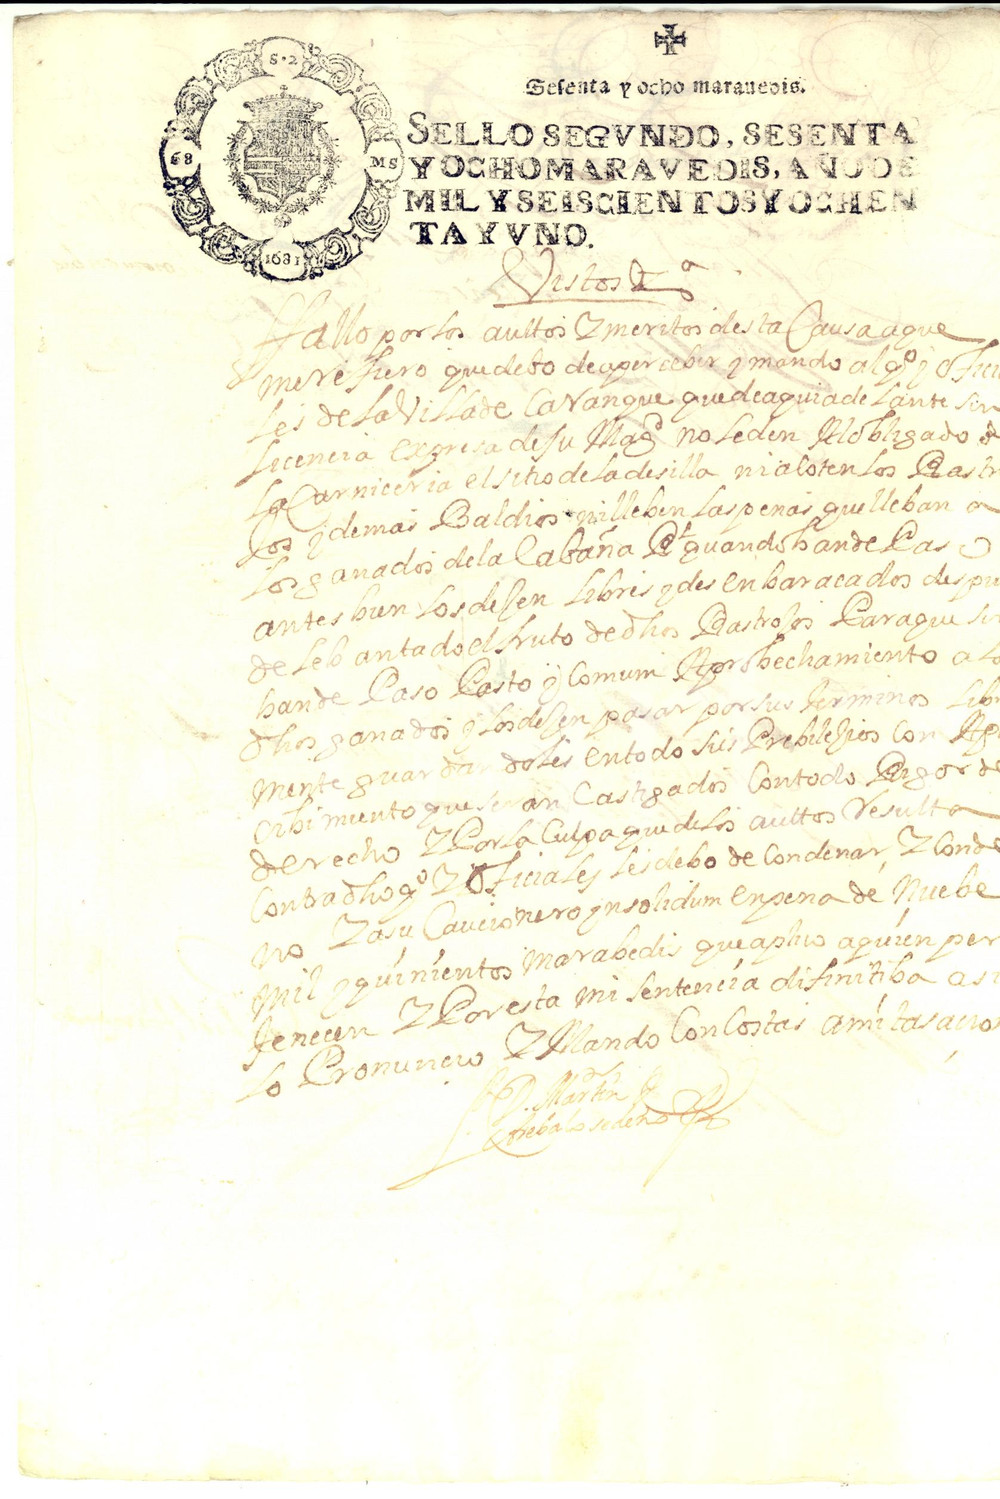 S. 2
68
MS
1681
Sesenta y ocho maravedis.
SELLO SEGVNDO, SESENTA
Y OCHO MARAVEDIS, AÑO DE
MIL Y SEISCIENTOS Y OCHEN
TA Y VNO.
Vistos
Fallo por los auttos Y meritos desta Causa a que
me refiero que debo de aperceber y mando al qº y oficia
les de la Villa de que de aqui adelante sin
licencia expresa de su Magd no le den Al obligado de
la Carniceria el sitio de la desilla ni acoten los Rastro
jos y demas Baldios ni lleben las penas que lleban a
los ganados de la Cabaña Rl quando han de Pas
antes bien los dejen libres y desenbaracados despu
de lebantado el fruto de dhos Rastrojos Para que sir
han de Paso Pasto y comum Aprobechamiento a lo
dhos ganados y los dejen pasar por sus terminos libr
mente guardandoles en todo sus Prebilejios con Ape
cibimiento que seran Castigados Con todo Rigor de
derecho Y Por la Culpa que de los auttos Resulta
Contra dho qº Y Oficiales les debo de Condenar Y Conde
no Y a su Caucionero ynsolidum en pena de Nuebe
mil y quinientos marabedis que aplico a quien per
tenecen Y Por esta mi sentencia difinitiba asi
lo Pronuncio Y Mando Con Costas a mi tasacion
D. Martin